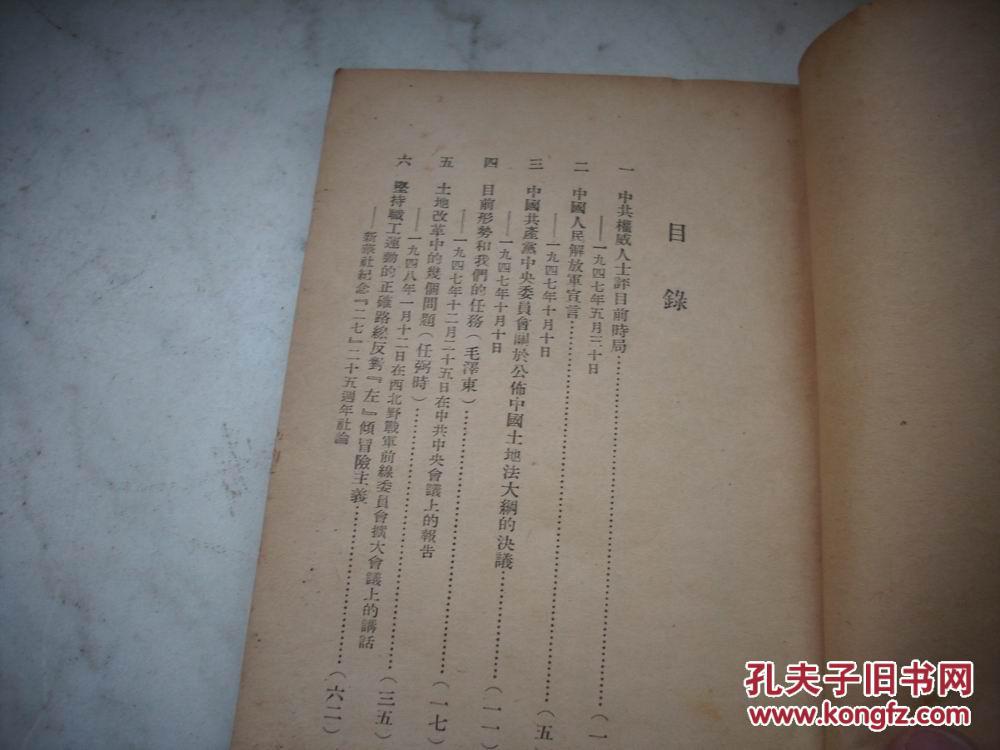 目錄
一 中共權威人士評目前時局……(一
——一九四七年五月三十日
二 中國人民解放軍宣言……(五
——一九四七年十月十日
三 中國共產黨中央委員會關於公佈中國土地法大綱的決議……(一一)
——一九四七年十月十日
四 目前形勢和我們的任務(毛澤東)……(一七)
——一九四七年十二月二十五日在中共中央會議上的報告
五 土地改革中的幾個問題(任弼時)……(三五)
——一九四八年一月十二日在西北野戰軍前線委員會擴大會議上的講話
六 堅持職工運動的正確路線反對『左』傾冒險主義……(六二)
——新華社紀念『二七』二十五週年社論
孔夫子旧书网
www.kongfz.com